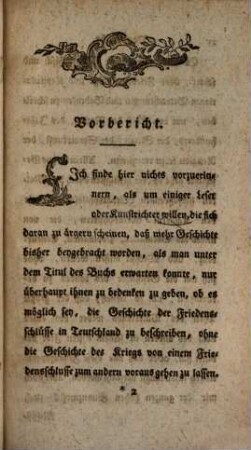 Vorbericht.
Ich finde hier nichts vorzuerin-
nern, als um einiger Leser
oder Kunstrichter willen, die sich
daran zu ärgern scheinen, daß mehr Geschichte
bisher beygebracht worden, als man unter
dem Titul des Buchs erwarten konnte, nur
überhaupt ihnen zu bedenken zu geben, ob es
möglich sey, die Geschichte der Friedens-
schlüsse in Teutschland zu beschreiben, ohne
die Geschichte des Kriegs von einem Frie-
densschlusse zum andern voraus gehen zu lassen.
* 2